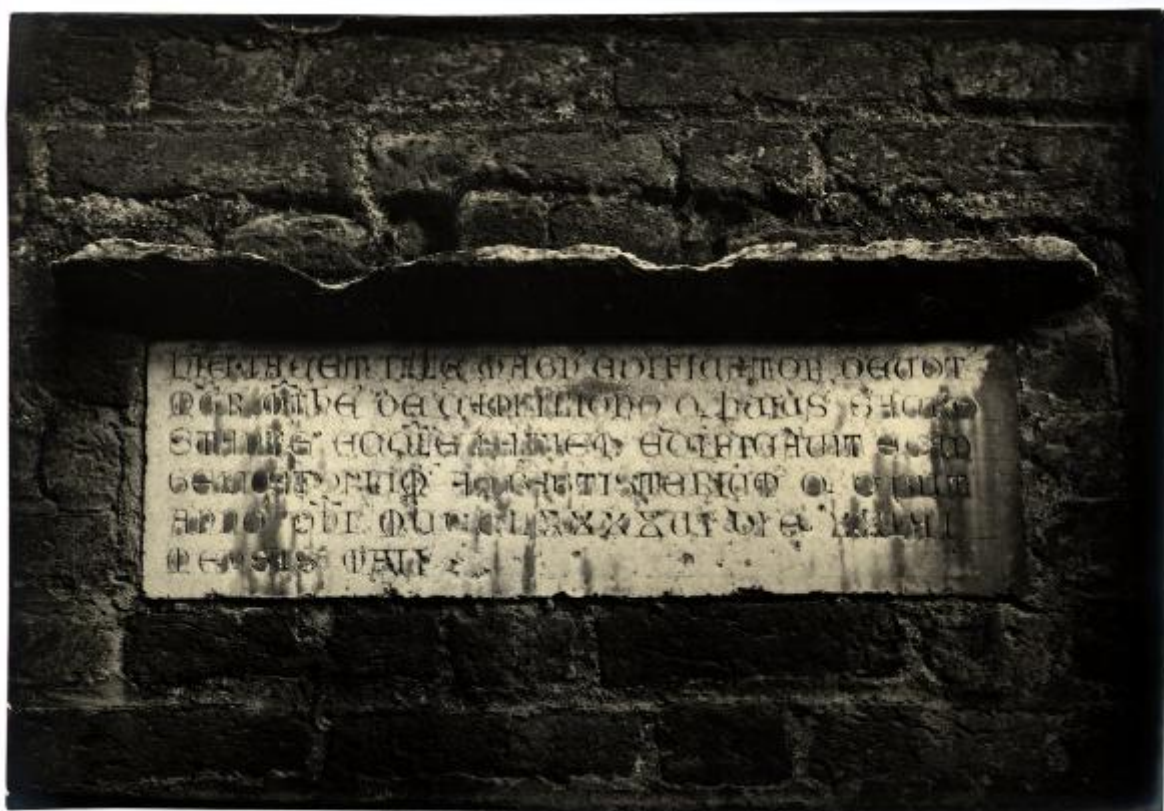 HIC IACET ILLE MAGN EDIFICATOR DEVOT
MGR MTHE DE CAMPILIONO Q HUIUS SACRO
ECCLE FACIEM EDIFICAVIT
BAPTISTERIUM Q
ANNO DNI MCCCLXXXXVI DIE
MENSIS MAII